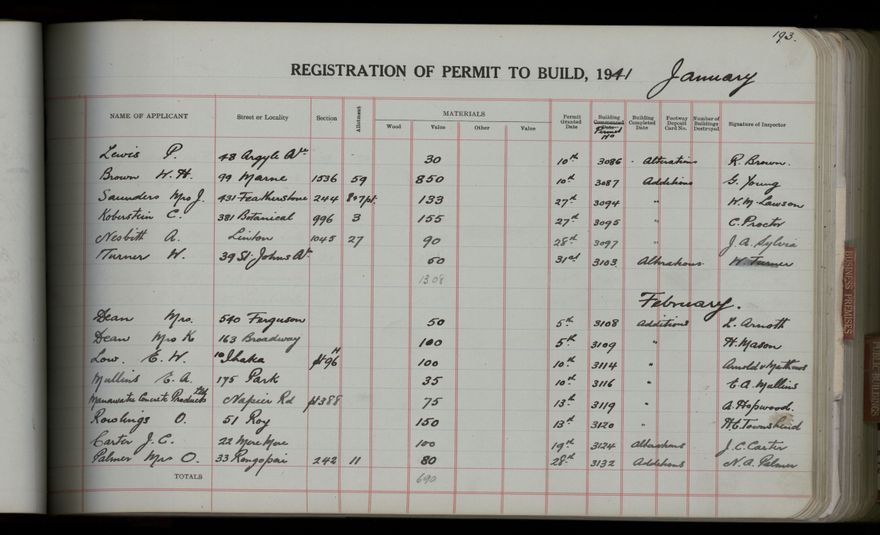 193.
REGISTRATION OF PERMIT TO BUILD, 1941 January
NAME OF APPLICANT Street or Locality Section Allotment MATERIALS Wood Value Other Value Permit Granted Date Building Commenced Permit No Building Completed Date Footway Deposit Card No. Number of Buildings Destroyed Signature of Inspector
Lewis P. 48 Argyle Av 30 10th 3086 Alterations R. Brown.
Brown W. H. 99 Marne 1536 59 850 10th 3087 Additions G. Young
Saunders Mrs J. 431 Featherstone 244 807pt. 133 27th 3094 " W. M. Lawson
Koberstein C. 381 Botanical 996 3 155 27th 3095 " C. Proctor
Nesbitt A. Linton 1045 27 90 28th 3097 " J. A. Sylvia
Turner W. 39 St. Johns Av 50 31st 3103 Alterations W. Turner
1308
February.
Dean Mrs. 540 Ferguson 50 5th 3108 Additions L. Arnoth
Dean Mrs K 163 Broadway 100 5th 3109 " H. Mason
Low. E. W. 10 Ihaka 496 100 10th 3114 " Arnold & Mathews
Mullins E. A. 175 Park 35 10th 3116 " E A. Mullins
Manawatu Concrete Products Ltd Napier Rd 1388 75 13th 3119 " A. Hopwood.
Rowlings O. 51 Roy 150 13th 3120 " H. E Townshend
Carter J. C. 22 Mere Mere 100 19th 3124 Alterations J. C. Carter
Palmer Mrs O. 33 Rongopai 242 11 80 28th 3132 Additions N. A. Palmer
TOTALS 690
BUSINESS PREMISES
PUBLIC BUILDINGS